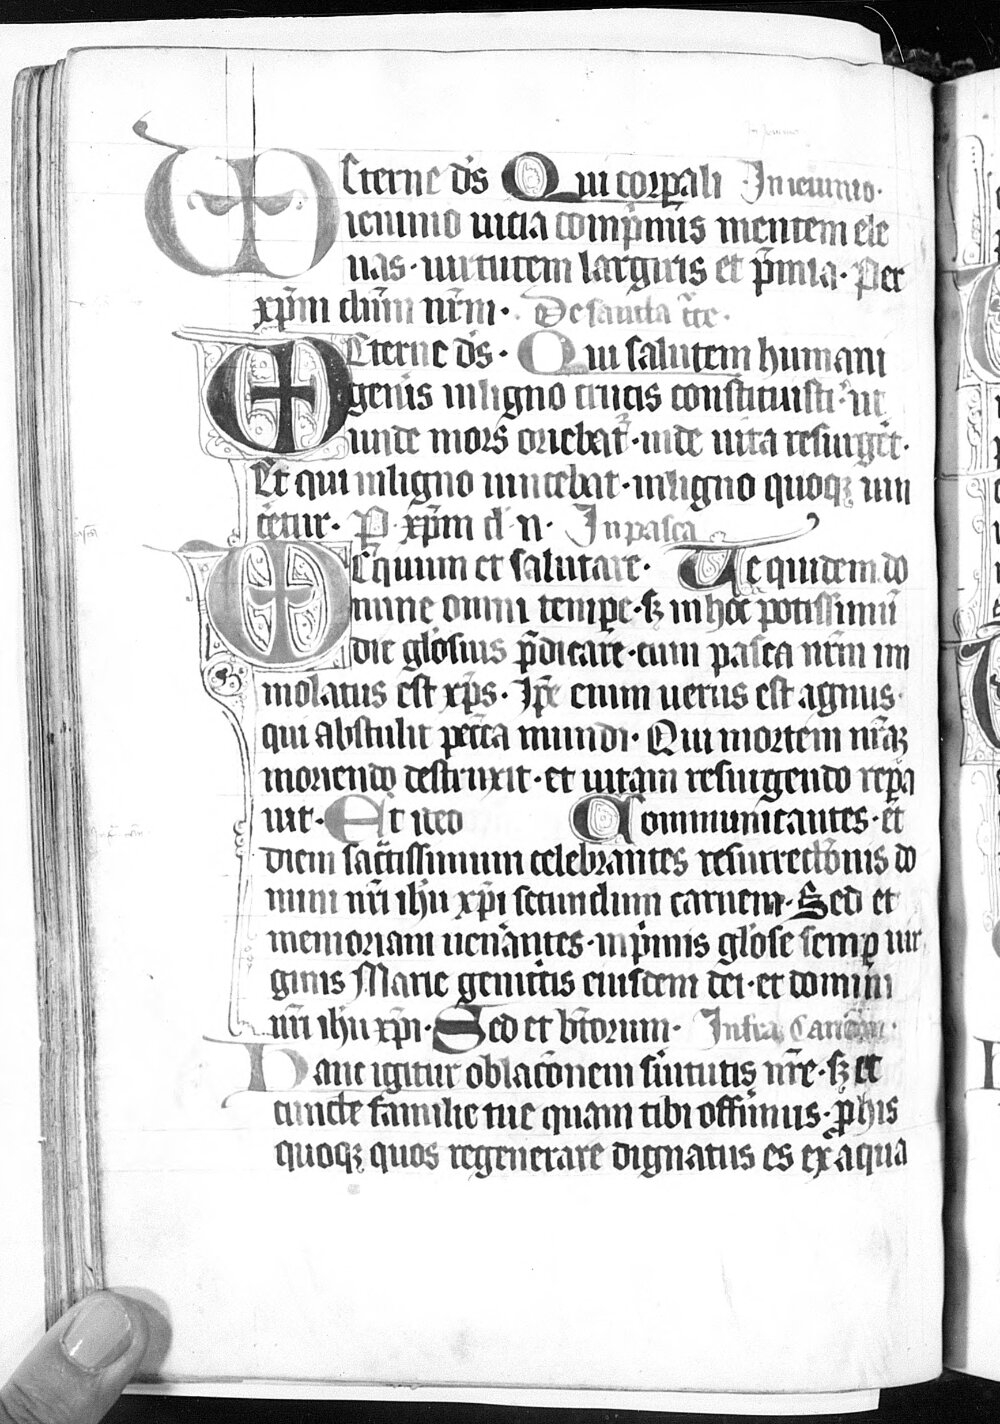 Eterne ds̄ Qui corꝑali In ieiunio·
ieiunio uicia comp̄mis mentem ele
uas· uirtutem largiris et p̄mia· Per
xp̄m dn̄m nr̄m· De sancta c̄ce·
Eterne ds̄· Qui salutem humani
generis in ligno crucis constituisti· ut
unde mors oriebat᷑· inde uita resurger̄et·
Et qui in ligno uincebat· in ligno quoqꝫ uin
cetur· P xp̄m d n· In pasca
Equum et salutare· Te quidem do
mine omni tempe· sꝫ in hoc potissimū
die glōsius p̄dicare· cum pasca nr̄m im
molatus est xp̄s· Ip̄e enim uerus est agnus·
qui abstulit pecc̄a mundi· Qui mortem nr̄aꝫ
moriendo destruxit· et uitam resurgendo repa
uit· Et ideo Communicantes· et
diem sac̄tissimum celebrantes resurrectōnis do
mini nr̄i ihū xp̄i secundum carnem· Sed et
memoriam uen̄antes· inp̄mis glōse semꝑ uir
ginis Marie genitcis eiusdem dei· et domini
nr̄i ihū xp̄i· Sed et btōrum· Infra Canōnem·
Hanc igitur oblacōnem s̄uitutis nr̄e· sꝫ et
cuncte familie tue quam tibi off̄imus· p̄ his
quoqꝫ quos regenerare dignatus es ex aqua